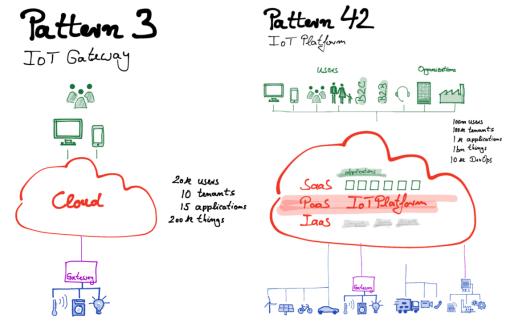 Pattern 3
IoT Gateway
Cloud
20k users
10 tenants
15 applications
200k things
Gateway
Pattern 42
IoT Platform
Users
Organizations
B2C
B2B
100m users
100k tenants
1k applications
1bn things
10k DevOps
applications
SaaS
PaaS IoT Platform
IaaS
Gateway